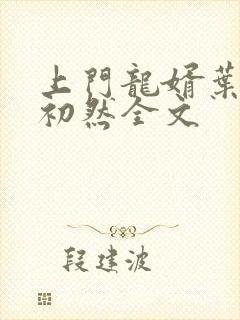 上門龍婿葉
初然全文
段建波